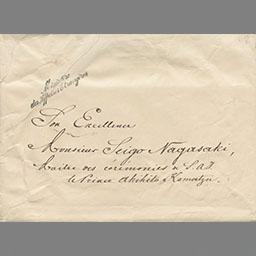 Ministère
des Affaires Etrangères
Son Excellence
Monsieur Seigo Nagasaki,
Maître des cérémonies de S.A.I.
le Prince Akihito, Komatzu.